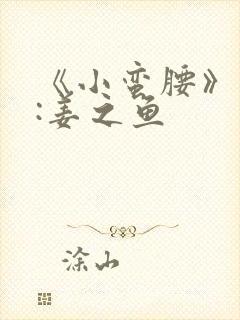 《小蛮腰》
:姜之鱼
涂山